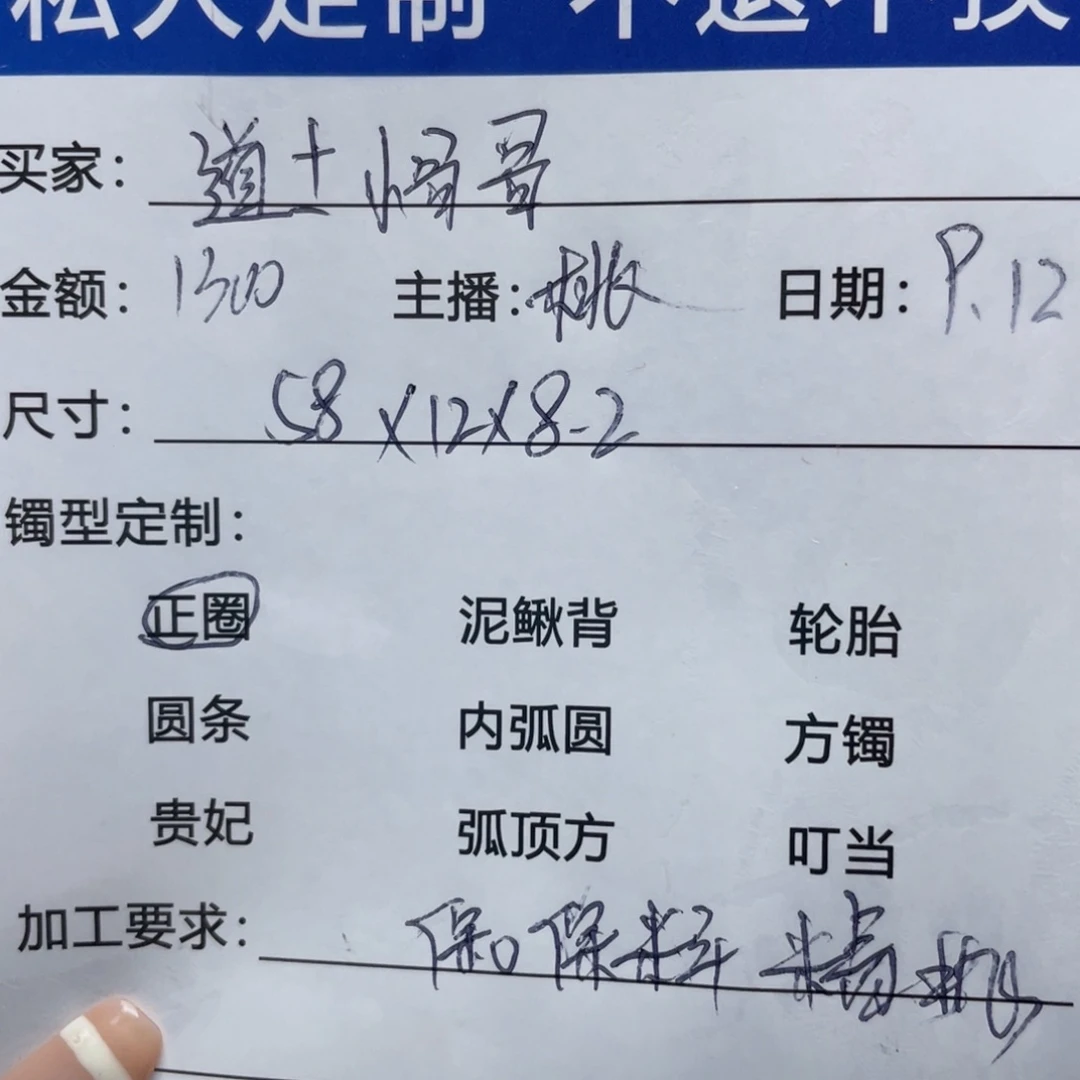 私人定制 不退不换
买家：道士悟哥
金额：1300 主播：桃 日期：9.12
尺寸：58×12×8-2
镯型定制：
正圈 泥鳅背 轮胎
圆条 内弧圆 方镯
贵妃 弧顶方 叮当
加工要求：保口保料 精抛